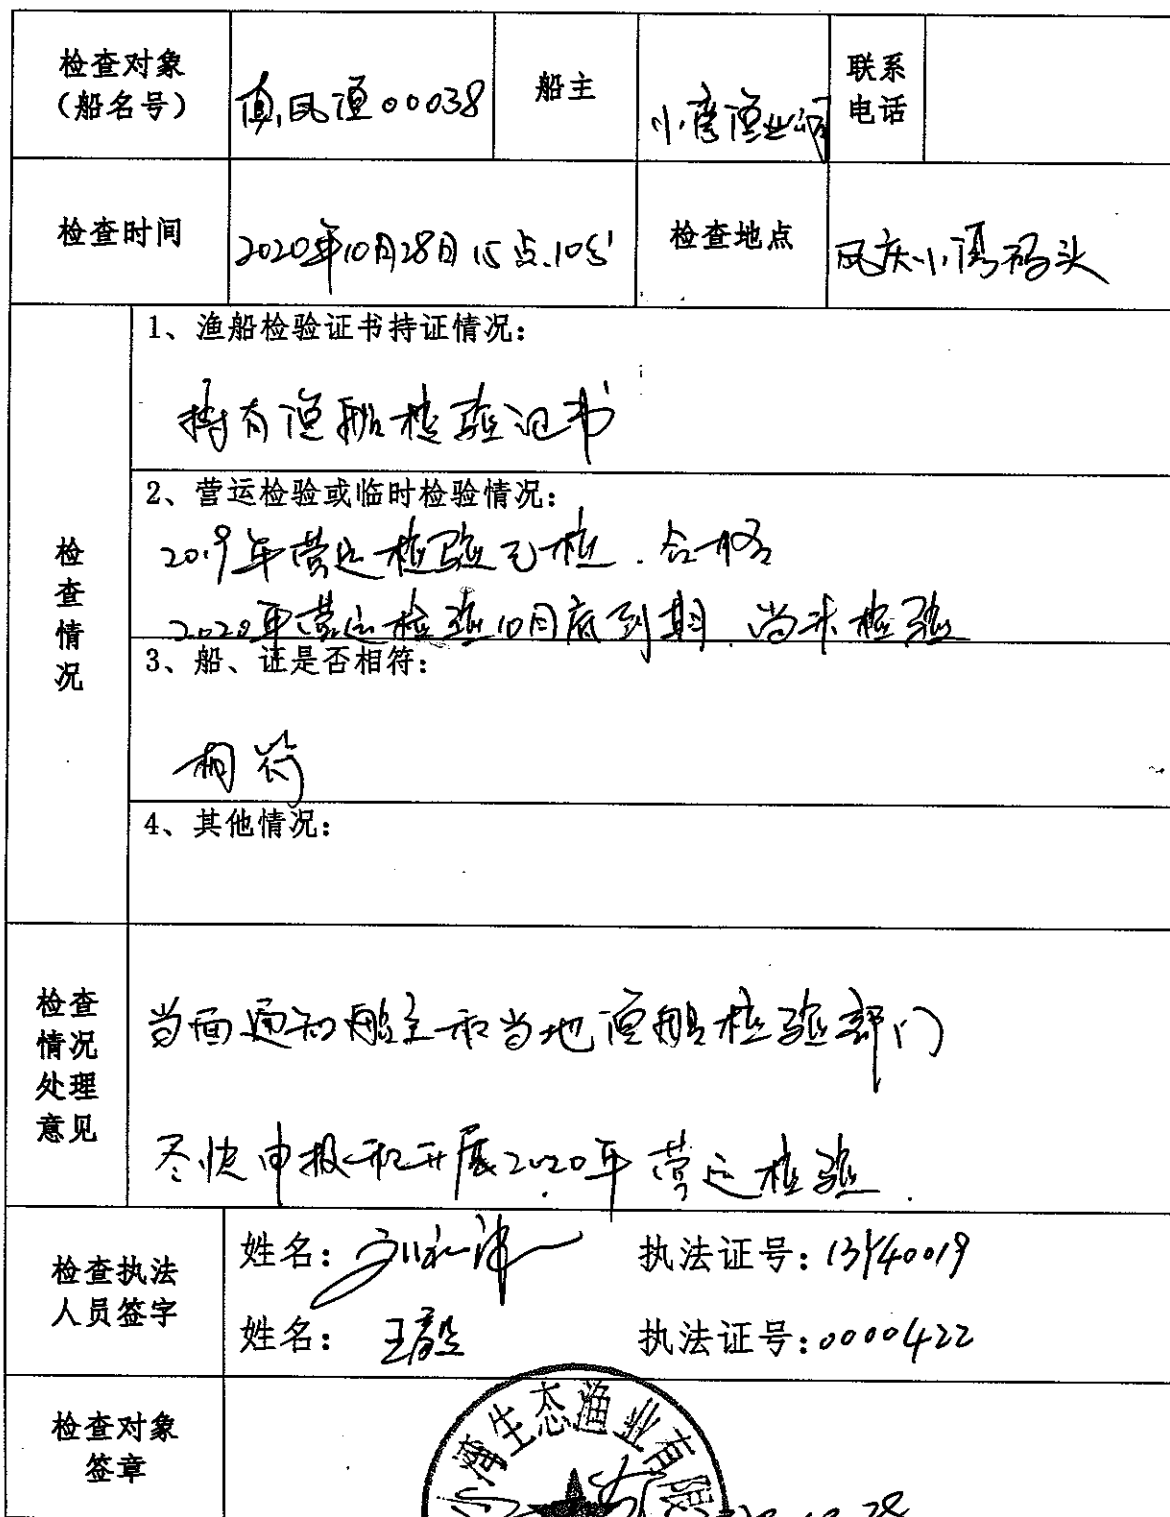 检查对象
(船名号)
滇凤渔00038
船主
小湾渔业公司
联系
电话
检查时间
2020年10月28日15点10分
检查地点
凤庆小湾码头
检查情况
1、渔船检验证书持证情况：
持有渔船检验证书
2、营运检验或临时检验情况：
2019年营运检验已检.合格
2020年营运检验10月底到期.尚未检验
3、船、证是否相符：
相符
4、其他情况：
检查
情况
处理
意见
当面通知船主和当地渔船检验部门
尽快申报和开展2020年营运检验.
检查执法
人员签字
姓名：
执法证号：
姓名：王
执法证号：0000422
检查对象
签章
小湾生态渔业有限